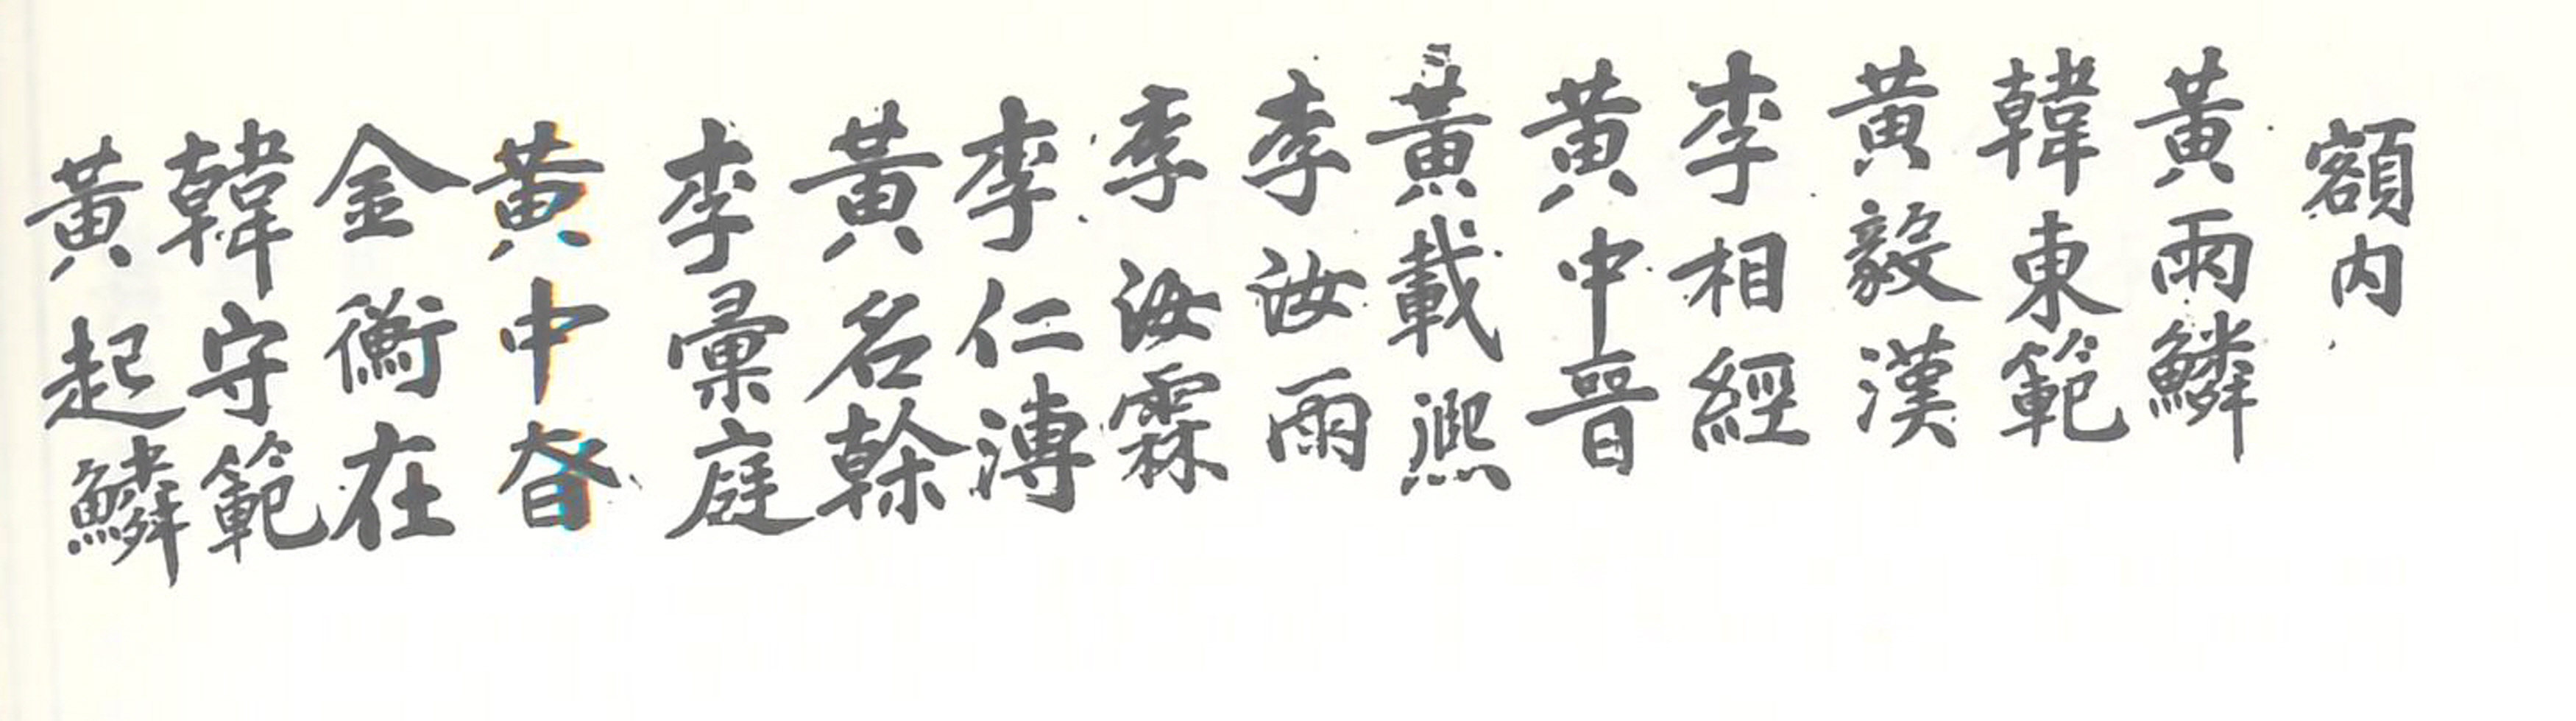 額内
黃雨鱗
韓東範
黃毅漢
李相經
黃中晋
黃載熙
李汝雨
李汝霖
李仁溥
黃名榦
李彙庭
黃中昚
金衡在
韓守範
黃起鱗